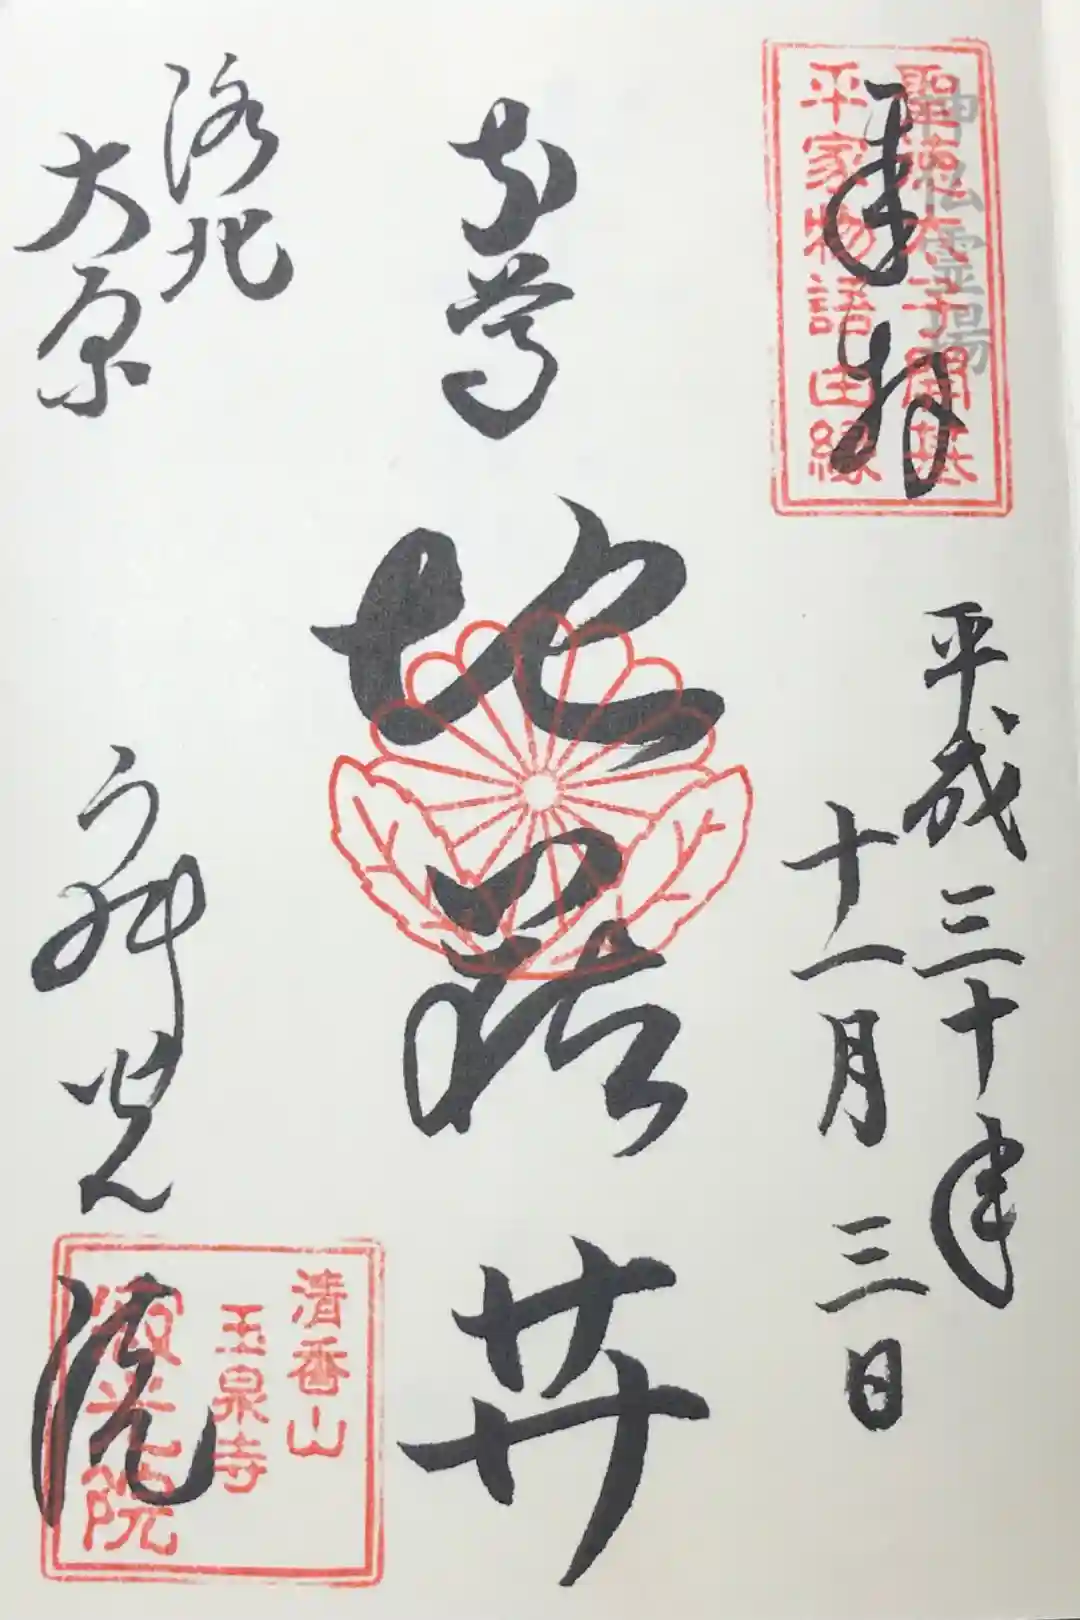 奉拝
聖徳太子開基
平家物語由縁
神仏霊場
平成三十年
十一月三日
本尊
地蔵
洛北
大原
寂光院
清香山
玉泉寺
寂光院